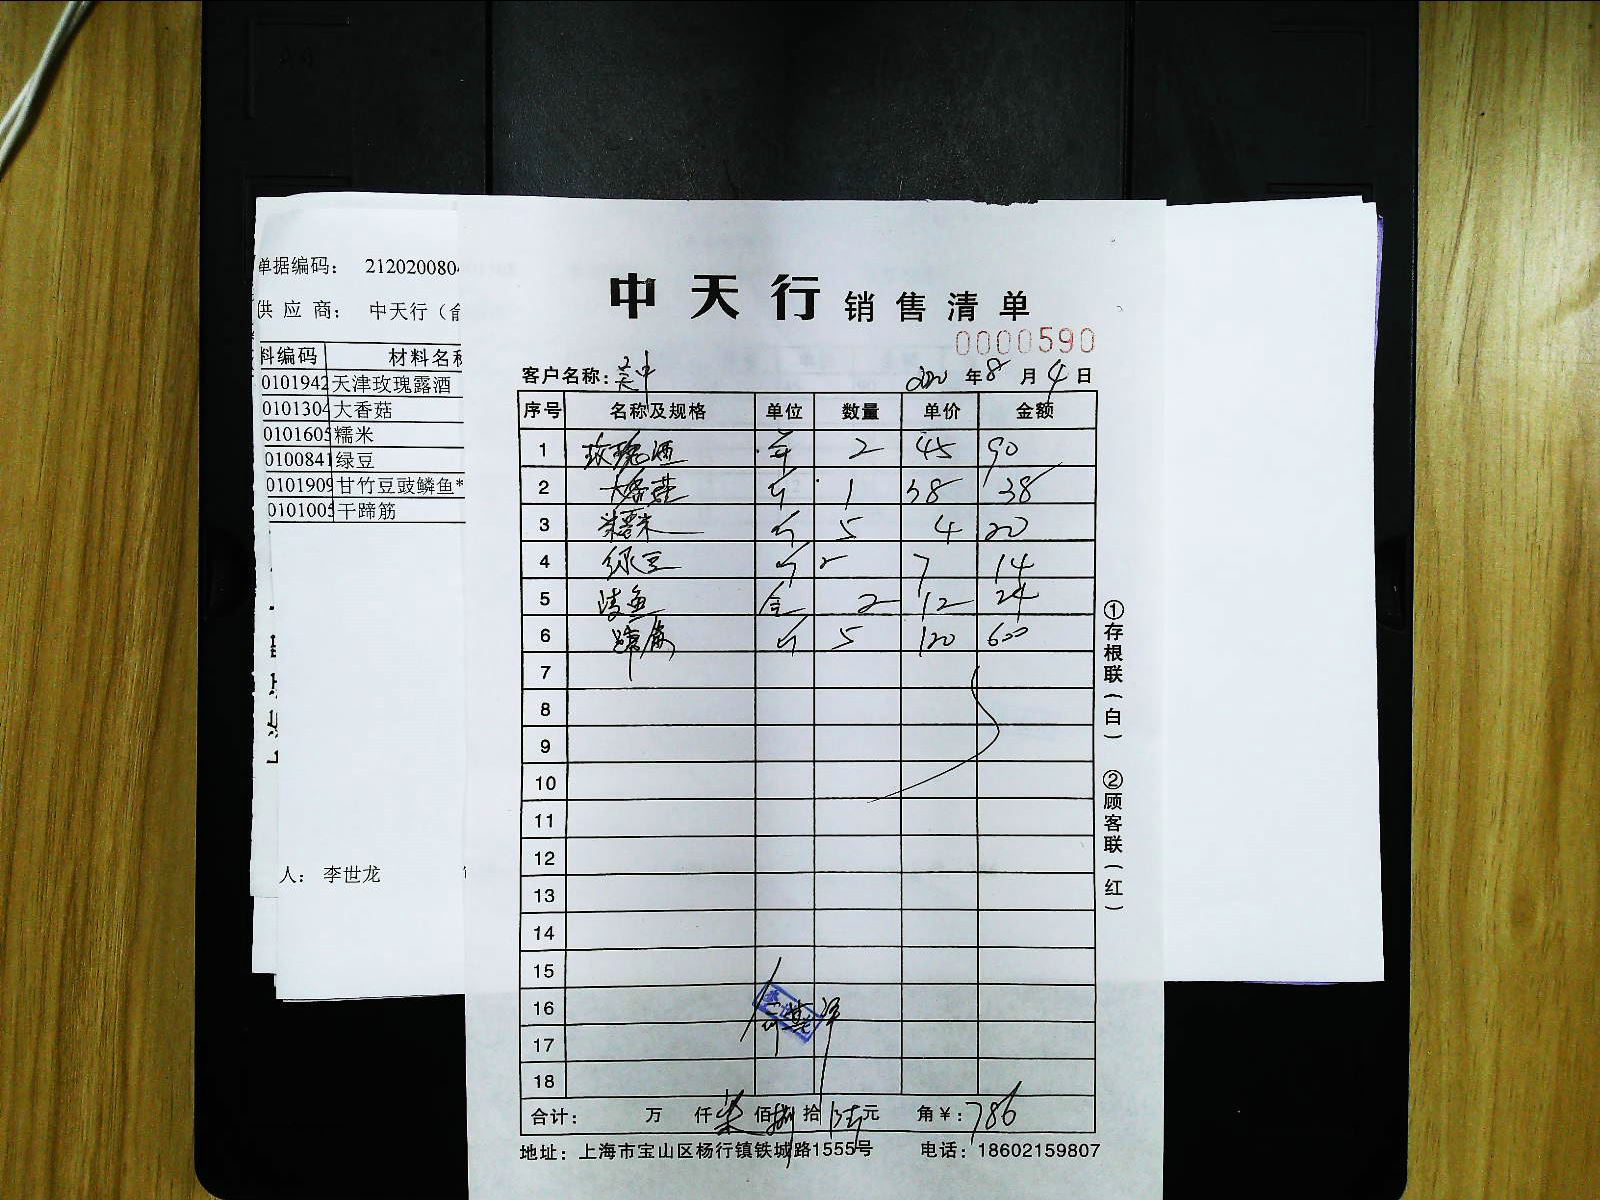 单据编码： 212020080
供 应 商： 中天行（俞
料编码 材料名称
0101942 天津玫瑰露酒
0101304 大香菇
0101605 糯米
0100841 绿豆
0101909 甘竹豆豉鳞鱼*
0101005 干蹄筋
人： 李世龙
中天行 销售清单
0000590
客户名称： 吴中 2020 年 8 月 4 日
序号 名称及规格 单位 数量 单价 金额
1 玫瑰酒 2 45 90
2 大香菇 斤 1 38 38
3 糯米 斤 5 4 20
4 绿豆 斤 2 7 14
5 鱼 2 12 24
6 蹄筋 斤 5 120 600
7
8
9
10
11
12
13
14
15
16
17
18
合计： 万 仟 柒 佰 捌 拾 陆 元 角 ¥：786
地址：上海市宝山区杨行镇铁城路1555号 电话：18602159807
①存根联（白） ②顾客联（红）